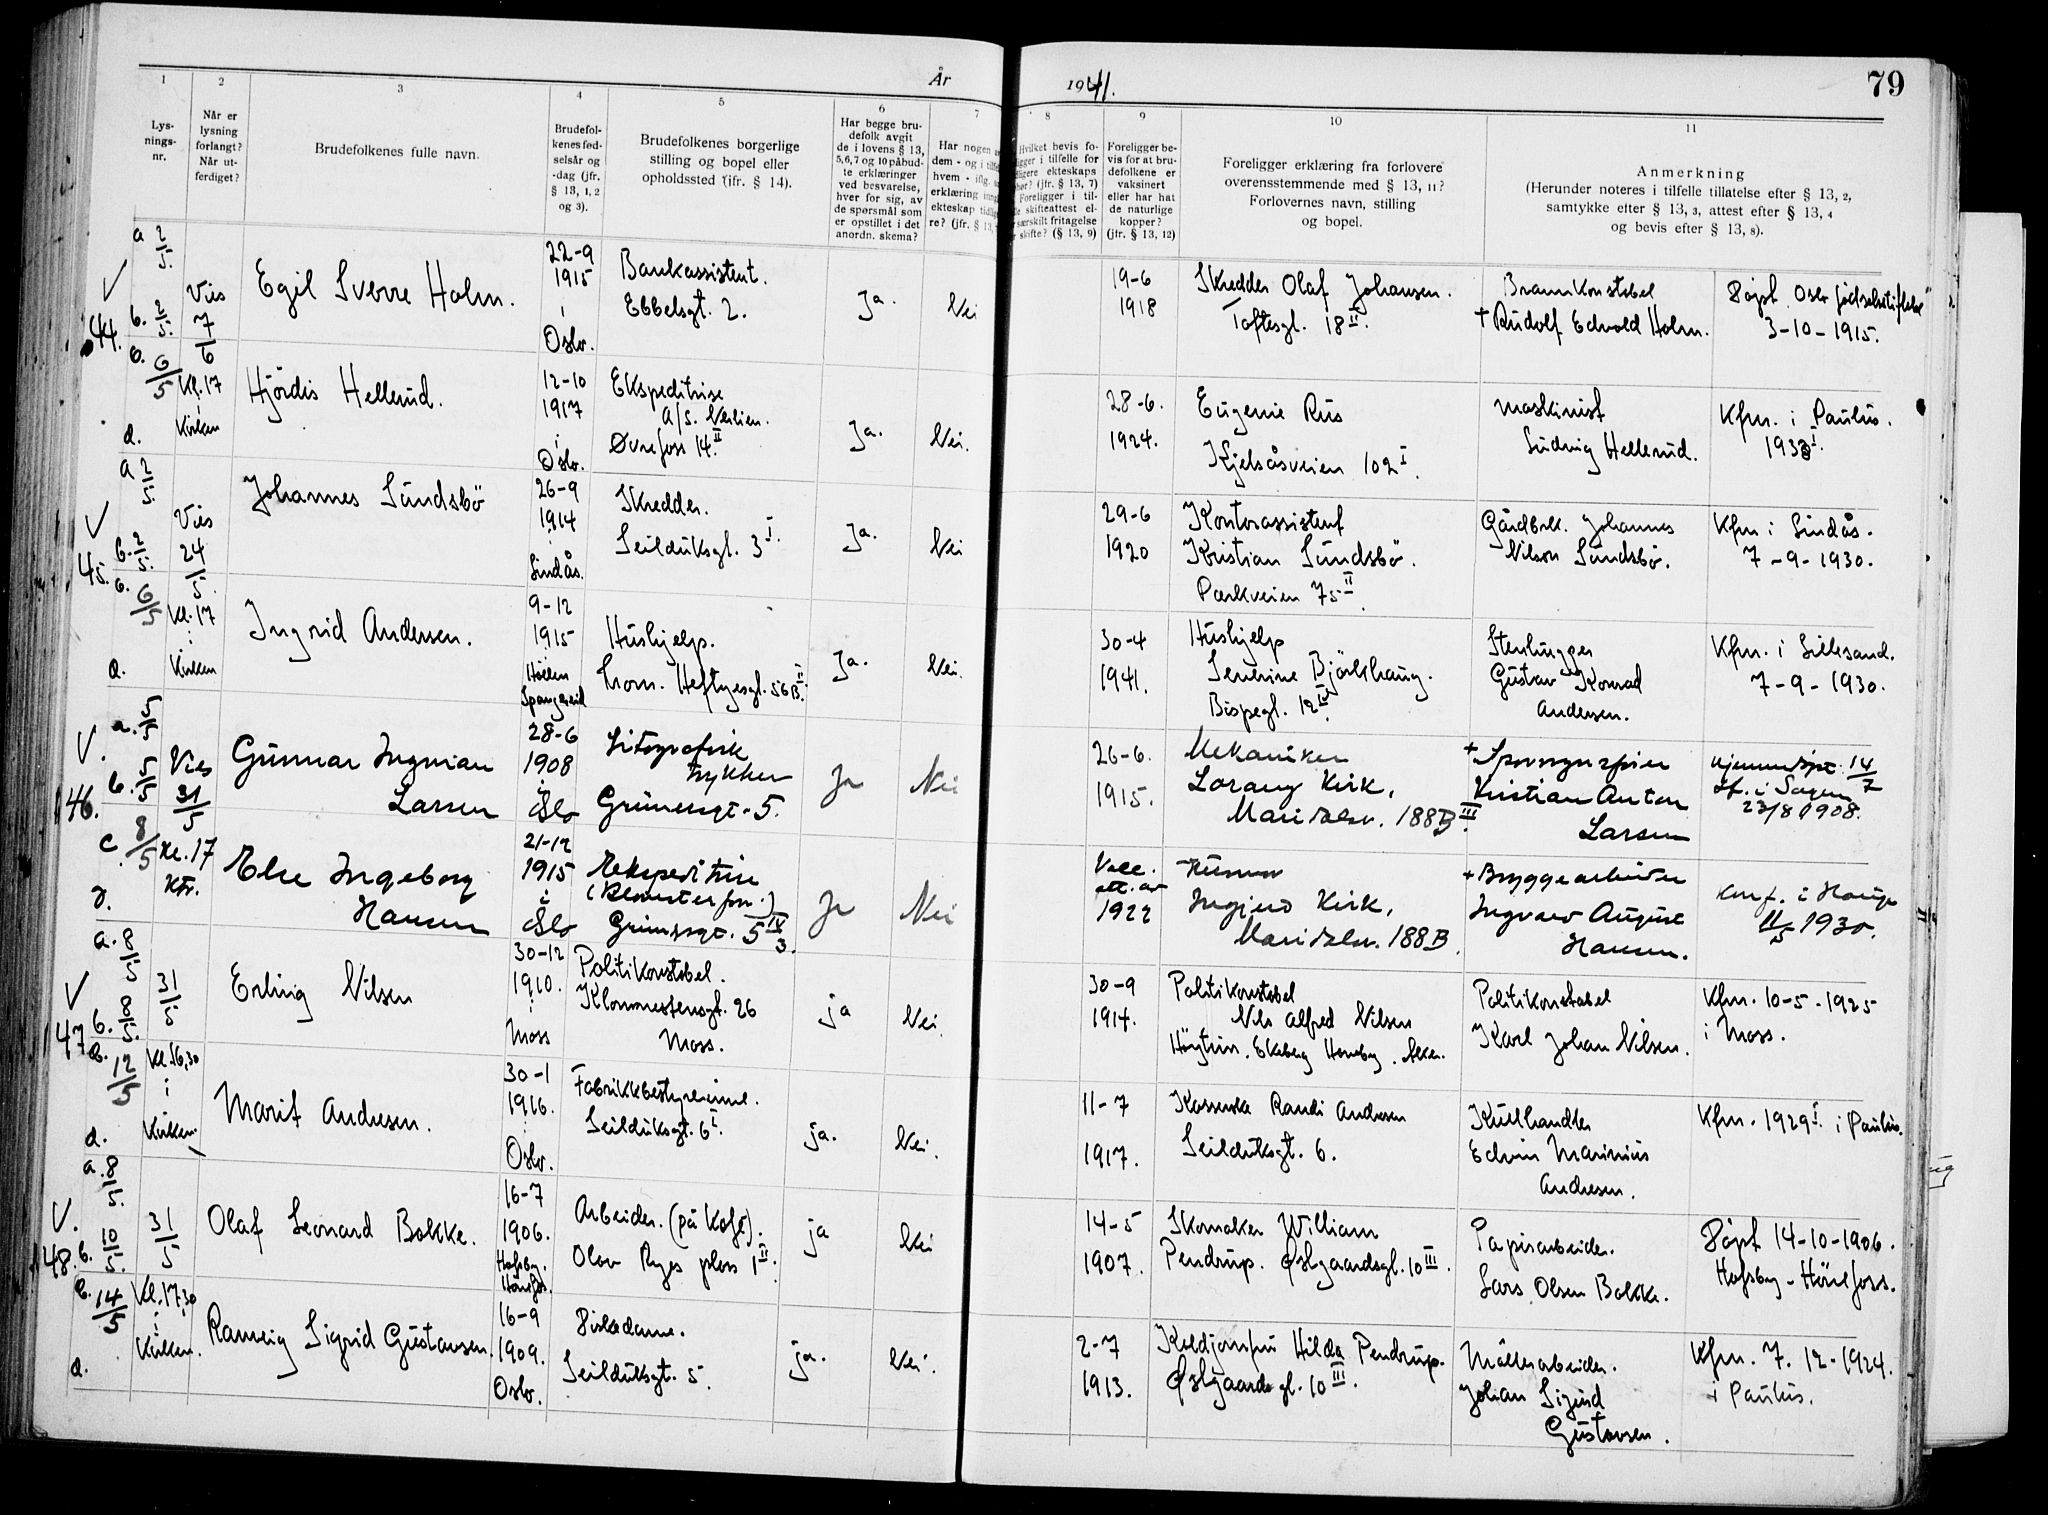 År 1941.
79
1
2
3
4
5
6
7
8
9
10
11
Lys-
nings-
nr.
Når er
lysning
forlangt?
Når ut-
ferdiget?
Brudefolkenes fulle navn.
Brudefol-
kenes fød-
selsår og
-dag (jfr.
§ 13, 1, 2
og 3).
Brudefolkenes borgerlige
stilling og bopel eller
opholdssted (jfr. § 14).
Har begge bru-
defolk avgit
de i lovens § 13,
5, 6, 7 og 10 påbud-
te erklæringer
ved besvarelse,
hver for sig, av
de spørsmål som
er opstillet i det
anordn. skema?
Har nogen
dem - og i
hvem - iflg.
erklæring
ekteskap
re? (jfr. § 13,
Hvilket bevis fo-
ligger i tilfelle for
ekteskaps
(jfr. § 13, 7)
Foreligger i til-
skifteattest el-
særskilt fritagelse
skifte? (§ 13, 9)
Foreligger be-
vis for at bru-
defolkene er
vaksinert
eller har hat
de naturlige
kopper?
(jfr. § 13, 12)
Foreligger erklæring fra forlovere
overensstemmende med § 13, 11?
Forlovernes navn, stilling
og bopel.
Anmerkning
(Herunder noteres i tilfelle tillatelse efter § 13, 2,
samtykke efter § 13, 3, attest efter § 13, 4
og bevis efter § 13, 8).
44.
a 2/5.
b. 2/5.
6/5
d.
Vies
7/6
Kl. 17
i
Kirken
Egil Sverre Holm.
22-9
1915
i
Oslo.
Bankassistent.
Ebbelsgt. 2.
Ja.
Nei
19-6
1918
Skredder Olaf Johansen.
Toftesgt. 18 II.
Brannkonstabel
† Rudolf Edvold Holm.
Døpt Oslo fødselsstiftelse
3-10-1915.
Hjördis Hellerud.
12-10
1917
i
Oslo.
Ekspeditrise
A/S.
Øvrefoss 14 II.
Ja.
Nei.
28-6.
1924.
Eugenie Rus
Kjelsåsveien 102 I.
Maskinist
Ludvig Hellerud.
Kfm. i Paulus.
45.
a 2/5
b. 2/5.
6/5
d.
Vies
24/5.
Kl. 17
i
Kirken
Johannes Sundsbö
26-9
1914
Lindås.
Skredder.
Seilduksgt. 3 I.
Ja.
Nei
29-6
1920
Kontorassistent
Kristian Sundsbö.
Parkveien 75 II.
Gårdbrk. Johannes
Nilson Sundsbö.
Kfm i Lindås.
7-9-1930.
Ingrid Andersen.
9-12
1915
Spangereid
Hushjelp.
Thom. Heftyesgt. 56 B. II
Ja.
Nei.
30-4
1941.
Hushjelp
Severine Bjørkhaug.
Bispegt. 12
Stenhugger
Gustav Konrad
Andersen.
Kfm. i Lillesand.
7-9-1930.
146.
a. 5/5
b. 5/5
c. 8/5
d.
Vies
31/5
Kl. 17
Kir.
Gunnar Ingvian
Larsen
28-6
1908
i
Oslo
Litografisk
trykker
Grünersgt. 5.
Ja
Nei
26-6.
1915.
Mekaniker
Lorang Kirk,
Maridalsv. 188 B III.
Kristian Anton
Larsen
Hjemmedøpt 14/7
stf. i Sagene
23/8 1908.
Else Ingeborg
Hansen
21-12
1915
i
Oslo
Ekspeditrise
(Blomsterforr.)
Grünersgt. 5 IV
3.
Ja
Nei
Vacc.
att. av
1922
Husmor
Ingjerd Kirk,
Maridalsv. 188 B.
+ Bryggearbeider
Ingvard August
Hansen.
Konf. i Hauge
11/5 1930.
147
a. 8/5
b. 8/5.
12/5
d.
31/5
Kl. 16,30
i
Kirken.
Erling Nilsen
30-12
1910.
i
Moss
Politikonstabel.
Klommestensgt. 26
Moss.
ja
Nei.
30-9
1914.
Politikonstabel
Nils Alfred Nilsen
Politikonstabel
Karl Johan Nilsen.
Kfm. 10-5-1925
i Moss.
Marit Andresen.
30-1
1916.
Oslo.
Fabrikkbestyrerinne.
Seilduksgt. 6 I.
ja.
Nei.
11-7
1917.
Randi Andresen
Seilduksgt. 6.
Kullhandler
Edvin Marinius
Andresen.
Kfm. 1929 I. i Paulus.
148.
a. 8/5.
b. 10/5.
14/5
d.
31/5
Kl. 17.30
i
Kirken.
Olaf Leonard Bakke.
16-7
1906.
Hofsby.
Hönefos.
Arbeider. (på Kafé).
Olav Ryes plass 1 II.
ja
Nei
14-5
1907.
Skomaker William
Pendrup. Østgaardsgt. 10 III.
Papirarbeider.
Lars Olsen Bakke.
Døpt 14-10-1906.
Hofsby - Hönefoss.
Ranveig Sigrid Gustavsen.
16-9
1909.
Oslo.
Diskedame.
Seilduksgt. 5.
ja.
Nei.
2-7
1913.
Koldjomfru Hilda Pendrup.
Østgaardsgt. 10 III.
Möllearbeider.
Johan Sigurd
Gustavsen.
Kfm. 7. 12-1924.
i Paulus.